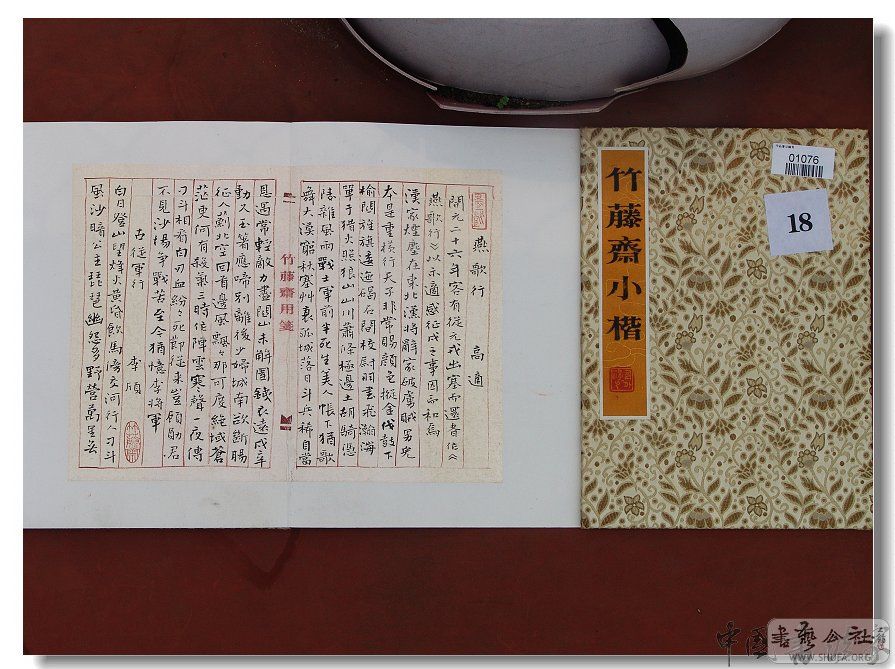 燕歌行 高適
開元二十六年客有從元戎出塞而還者作《
燕歌行》以示適感征戍之事因而和焉
漢家煙塵在東北漢將辭家破殘賊男兒
本是重橫行天子非常賜顏色摐金伐鼓下
榆關旌旗逶迤碣石間校尉羽書飛瀚海
單于猎火照狼山山川蕭條極邊土胡騎憑
陵雜風雨戰士軍前半死生美人帳下猶歌
舞大漠窮秋塞艸衰孤城落日斗兵稀身當
竹藤齋用箋
恩遇常輕敵力盡關山未解圍鐵衣遠戍辛
勤久玉箸應啼別離後少婦城南欲斷腸
征人薊北空回首邊風飄飄那可度絕域蒼
茫更何有殺氣三時作陣雲寒聲一夜傳
刁斗相看白刃血紛紛死節從來豈顧勛君
不見沙場爭戰苦至今猶憶李將軍
古從軍行 李頎
白日登山望烽火黃昏飲馬旁交河行人刁斗
風沙暗公主琵琶幽怨多野營萬里無
竹藤齋小楷
01076
18
中国書藝公社
WWW.SHUFA.ORG